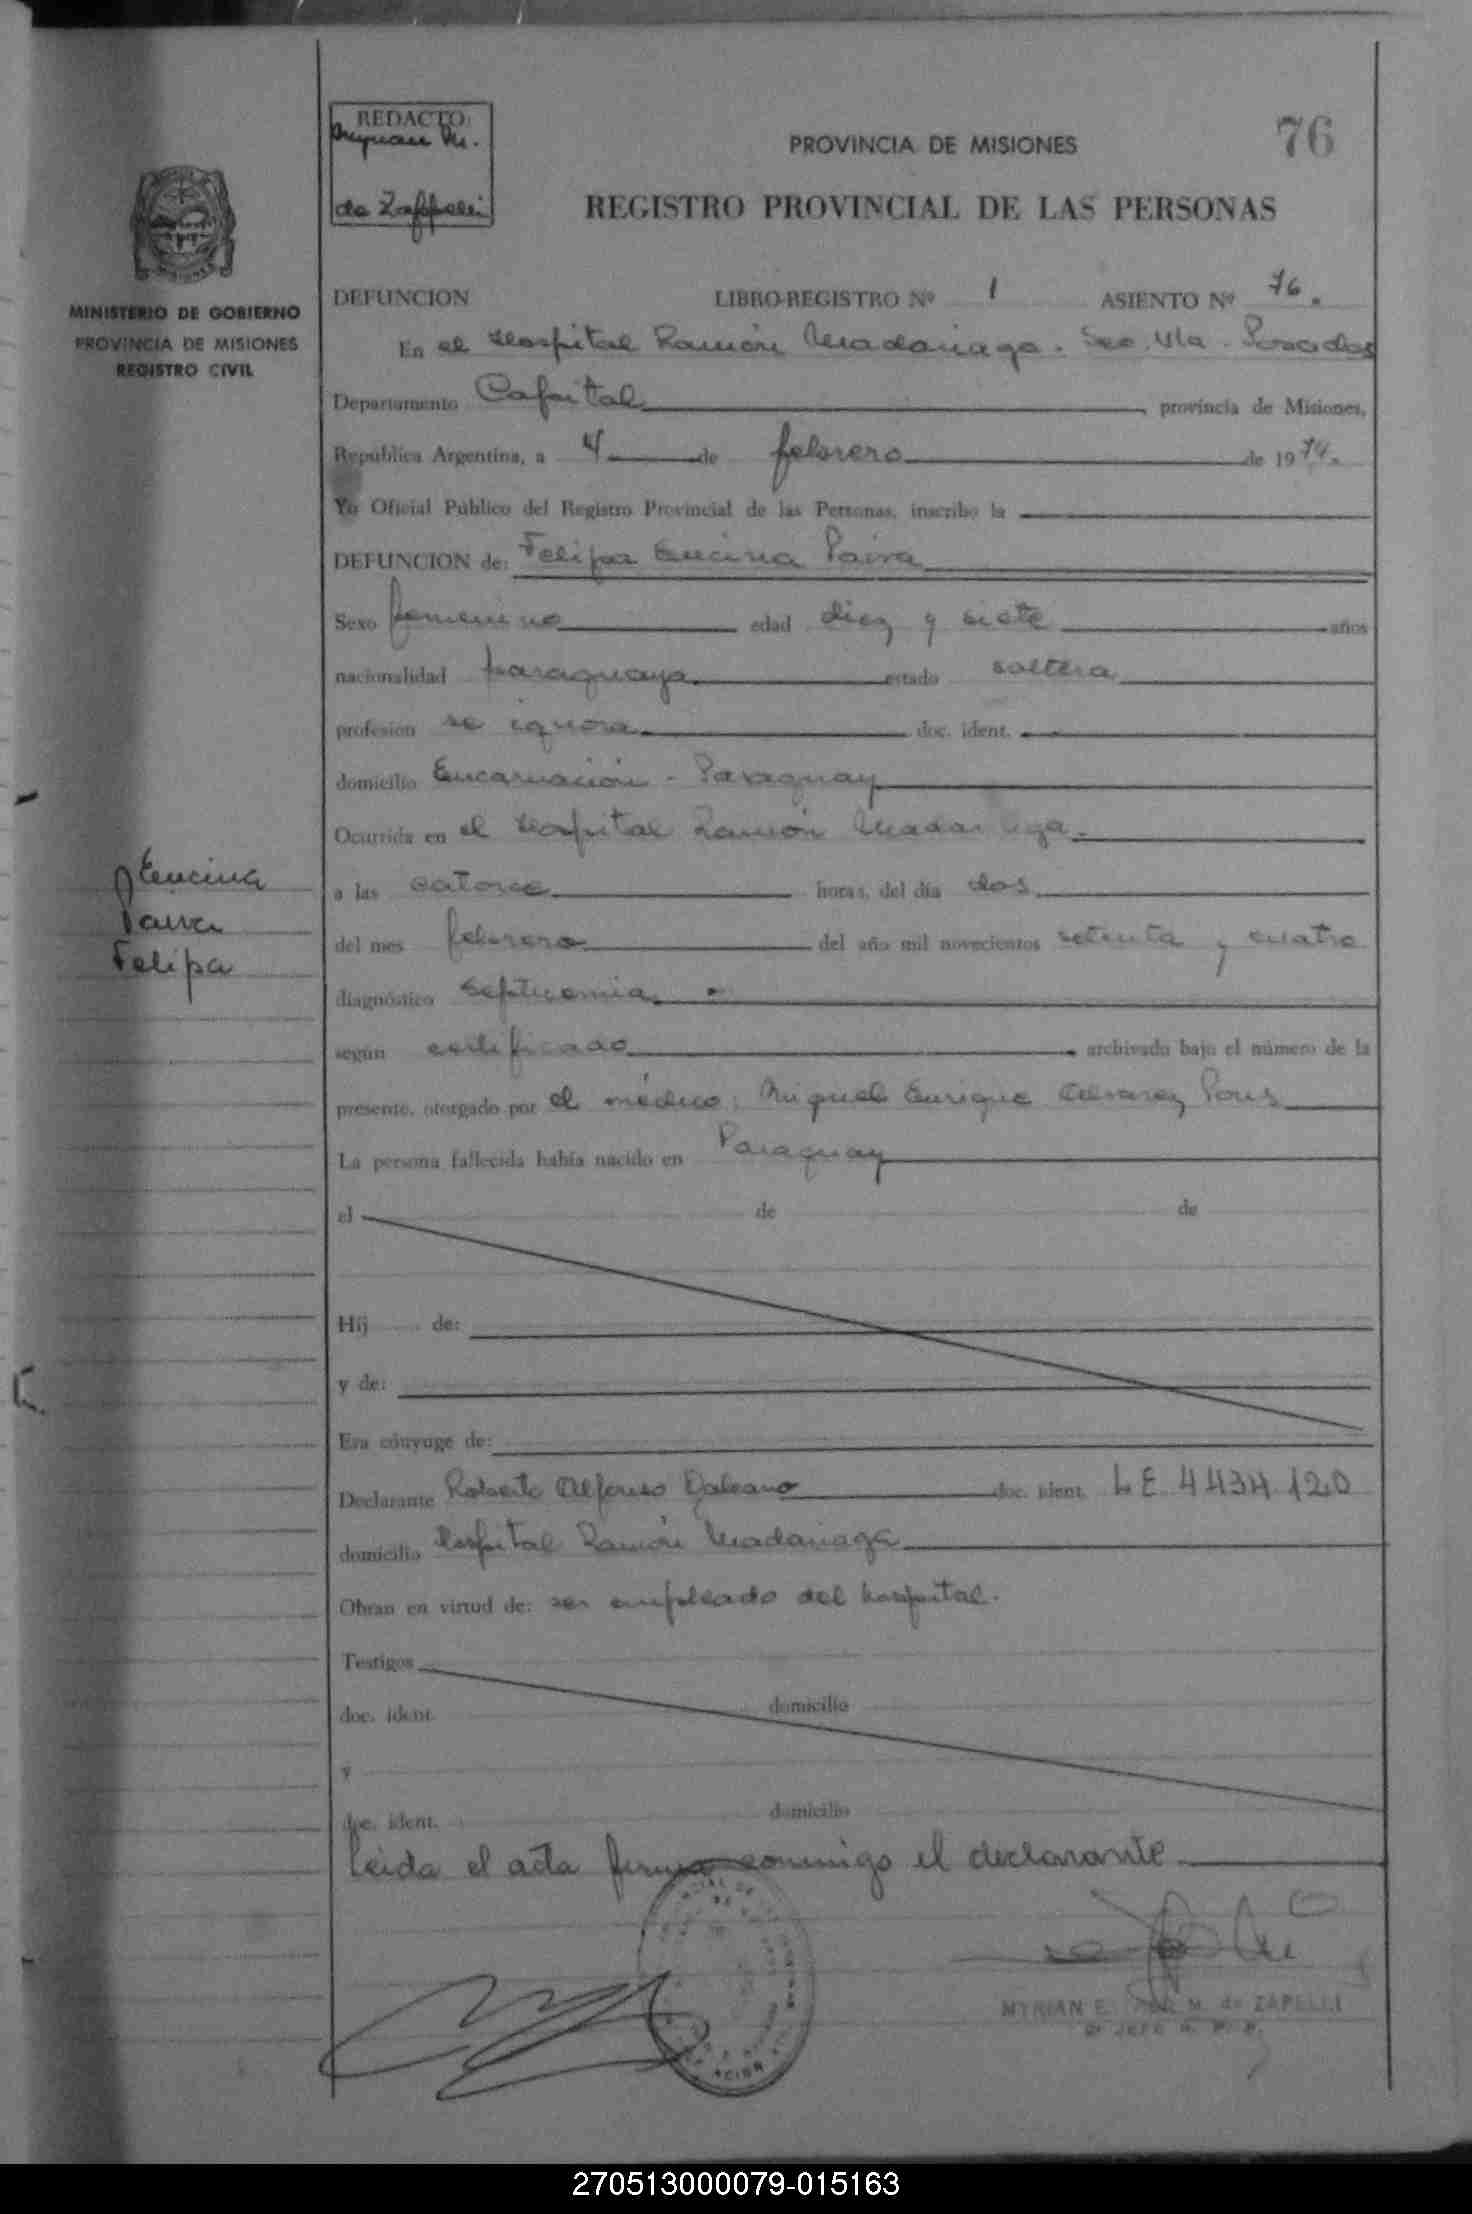 REDACTO:
Myrian M.
de Zappelli
PROVINCIA DE MISIONES
76
REGISTRO PROVINCIAL DE LAS PERSONAS
MINISTERIO DE GOBIERNO
PROVINCIA DE MISIONES
REGISTRO CIVIL
DEFUNCION LIBRO-REGISTRO Nº 1 ASIENTO Nº 76.
En el Hospital Ramón Madariaga. Posadas
Departamento Capital provincia de Misiones,
República Argentina, a 4 de febrero de 1974.
Yo Oficial Público del Registro Provincial de las Personas, inscribo la
DEFUNCION de: Felipa Encina Paiva
Sexo femenino edad diez y siete años
nacionalidad paraguaya estado soltera
profesión se ignora doc. ident.
domicilio Encarnación - Paraguay
Ocurrida en el Hospital Ramón Madariaga.
a las catorce horas, del día dos
del mes febrero del año mil novecientos setenta y cuatro
diagnóstico septicemia.
según certificado archivado bajo el número de la
presente, otorgado por el médico: Miguel Enrique Alvarez Pons
La persona fallecida había nacido en Paraguay
el de de
Hij de:
y de:
Era cónyuge de:
Declarante Roberto Alfonso Galeano doc. ident. LE 4434.120
domicilio Hospital Ramón Madariaga
Obran en virtud de: ser empleado del hospital.
Testigos
doc. ident. domicilio
y
doc. ident. domicilio
Leida el acta firma conmigo el declarante
Encina
Paiva
Felipa
MYRIAN E. M. de ZAPELLI
270513000079-015163